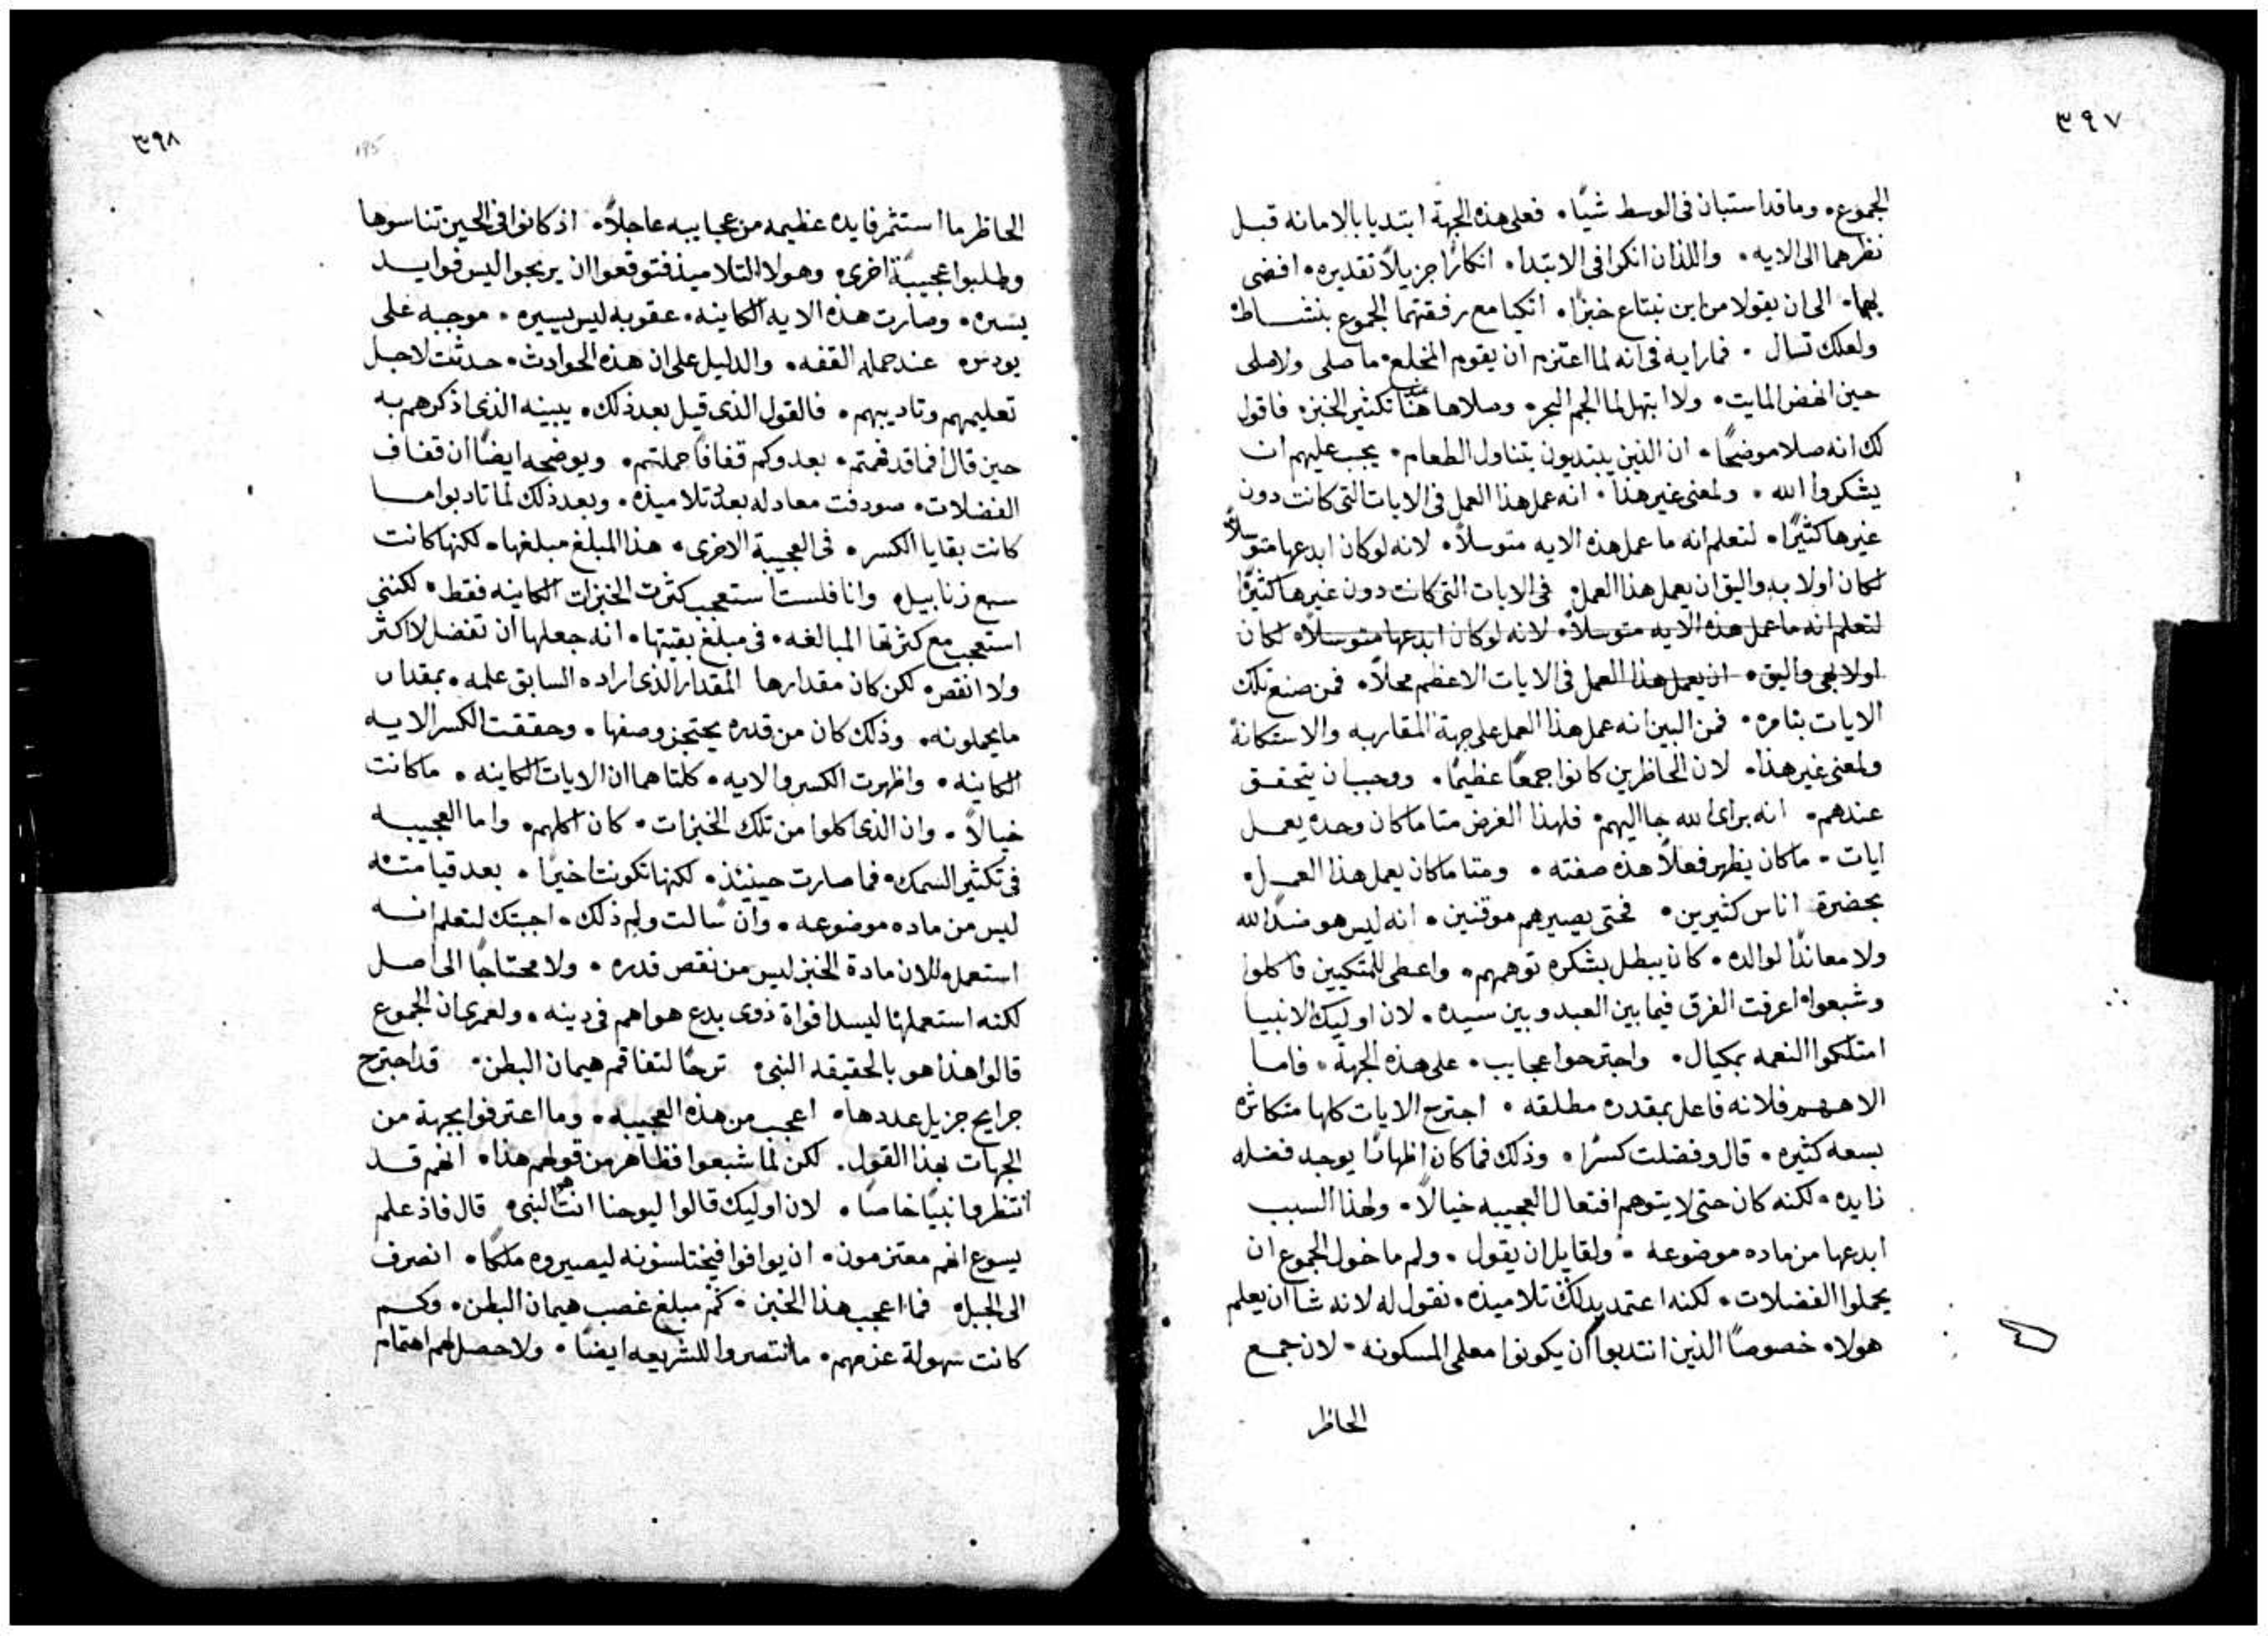 ٣٩٧
الجموع۰ وما قد استبان فى الوسط شيًا۰ فعلى هذه الجهة ابتديا بالامانه قبل
نظرهما الى الايه۰ واللذان انكرا فى الابتدا۰ انكارًا جزيلاً تقديره۰ افضى
بهما۰ الى ان يقولا من اين نبتاع خبزًا۰ اتكيا مع رفقتهما الجموع بنشاط۰
ولعلك تسال۰ فما رايه فى انه لما اعتزم ان يقوم المخلع۰ ما صلى ولا صلى
حين انهض المايت۰ ولا ابتهل لما الجم البحر۰ وصلا هاهنا عند تكثير الخبز۰ فاقول
لك انه صلا موضحًا۰ ان الذين يبتديون بتناول الطعام۰ يجب عليهم ان
يشكروا الله۰ ولمعنى غير هذا۰ انه عمل هذا العمل فى الايات التى كانت دون
غيرها كثيرًا۰ لتعلم انه ما عمل هذه الايه متوسلاً۰ لانه لو كان ابدعها متوسلاً
لكان اولا به واليق ان يعمل هذا العمل۰ فى الايات التى كانت دون غيرها كثيرًا
لتعلم انه ما عمل هذه الايه متوسلاً۰ لانه لو كان ابدعها متوسلاً۰ لكان
اولا به واليق۰ ان يعمل هذا العمل فى الايات الاعظم محلاً۰ فمن صنع تلك
الايات بتامره۰ فمن البين انه عمل هذا العمل على جهة المقاربه والاستكانة
ولمعنى غير هذا۰ لان الحاظرين كانوا جمعًا عظيمًا۰ ووجب ان يتحقق
عندهم۰ انه براى الله جا اليهم۰ فلهذا الغرض متا ما كان وحده يعمل
ايات۰ ما كان يظهر فعلاً هذه صفته۰ ومتا ما كان يعمل هذا العمل۰
بحضرة اناس كثيرين۰ فحتى يصيرهم موقنين۰ انه ليس هو ضدًا لله
ولا معاندًا لوالده۰ كان يبطل بشكره توهمهم۰ واعطى للمتكيين فاكلوا
وشبعوا۰ اعرفت الفرق فيما بين العبد وبين سيده۰ لان اوليك الانبيا
امتلكوا النعمه بمكيال۰ واجترحوا عجايب۰ على هذه الجهة۰ فاما
الاههم فلانه فاعل بمقدره مطلقه۰ اجترح الايات كلها متكاثره
بسعه كثيره۰ قال وفضلت كسرًا۰ وذلك فما كان اظهارًا يوجد فضله
زايده۰ لكنه كان حتى لا يتوهم افتعال العجيبه خيالاً۰ ولهذا السبب
ابدعها من ماده موضوعه۰ ولقايل ان يقول۰ ولم ما خول الجموع ان
يحملوا الفضلات۰ لكنه اعتمد بذلك تلاميذه۰ نقول له لانه شا ان يعلم
هولا۰ خصوصًا الذين انتدبوا ان يكونوا معلمى المسكونه۰ لان جمع
الحاظر
٣٩٨
195
الحاظر ما استثمر فايده عظيمه من عجايبه عاجلاً۰ اذ كانوا فى الحين تناسوها
وطلبوا عجيبةً اخرى۰ وهولا التلاميذ فتوقعوا ان يربحوا ليس فوايد
يسيره۰ وصارت هذه الايه الكاينه۰ عقوبه ليس يسيره۰ موجبه على
يودس۰ عند حمله القفه۰ والدليل على ان هذه الحوادث۰ حدثت لاجل
تعليمهم وتاديبهم۰ فالقول الذى قيل بعد ذلك۰ يبينه الذى اذكرهم به
حين قال افما قد فهمتم۰ بعد وكم قفافًا حملتهم۰ ويوضحه ايضًا ان قفاف
الفضلات۰ صودفت معادله بعدد تلاميذه۰ وبعد ذلك لما تادبوا ما
كانت بقايا الكسر۰ فى العجيبة الاخرى۰ هذا المبلغ مبلغها۰ لكنها كانت
سبع زنابيل۰ وانا فلست استعجب كثرت الخبزات الكاينه فقط۰ لكننى
استعجب مع كثرتها المبالغه۰ فى مبلغ بقيتها۰ انه جعلها ان تفضل لا اكثر
ولا انقص۰ لكن كان مقدارها المقدار الذى اراده السابق علمه۰ بمقدار
ما يحملونه۰ وذلك كان من قدره يحتجز وصفها۰ وحققت الكسر الايه
الكاينه۰ واظهرت الكسر والايه۰ كلتاهما ان الايات الكاينه۰ ما كانت
خيالاً۰ وان الذى اكلوا من تلك الخبزات۰ كان اكلهم۰ واما العجيبه
فى تكثير السمك۰ فما صارت حينيذ۰ لكنها تكونت اخيرًا۰ بعد قيامته
ليس من ماده موضوعه۰ وان سالت ولم ذلك۰ اجبتك لتعلم انه
استعمل الان مادة الخبز ليس من نقص قدره۰ ولا محتاجًا الى اصل
لكنه استعملها ليسد افواه ذوى بدع هواهم فى دينه۰ ولعمرى ان الجموع
قالوا هذا هو بالحقيقه النبى۰ ترحًا لتفاقم هيمان البطن۰ قد اجترح
جرايح جزيل عددها۰ اعجب من هذه العجيبه۰ وما اعترفوا بجهة من
الجهات بهذا القول۰ لكن لما شبعوا فظاهر من قولهم هذا۰ انهم قد
انتظروا نبيًا خاصًا۰ لان اوليك قالوا ليوحنا انت هو النبى۰ قال فاذ علم
يسوع انهم معتزمون۰ ان يوافوا فيختلسونه ليصيروه ملكًا۰ انصرف
الى الجبل۰ فما اعجب هذا الخبز۰ كم مبلغ غصب هيمان البطن۰ وكم
كانت سهولة عزمهم۰ ما انتصروا للشريعه ايضًا۰ ولا حصل لهم اهتمام